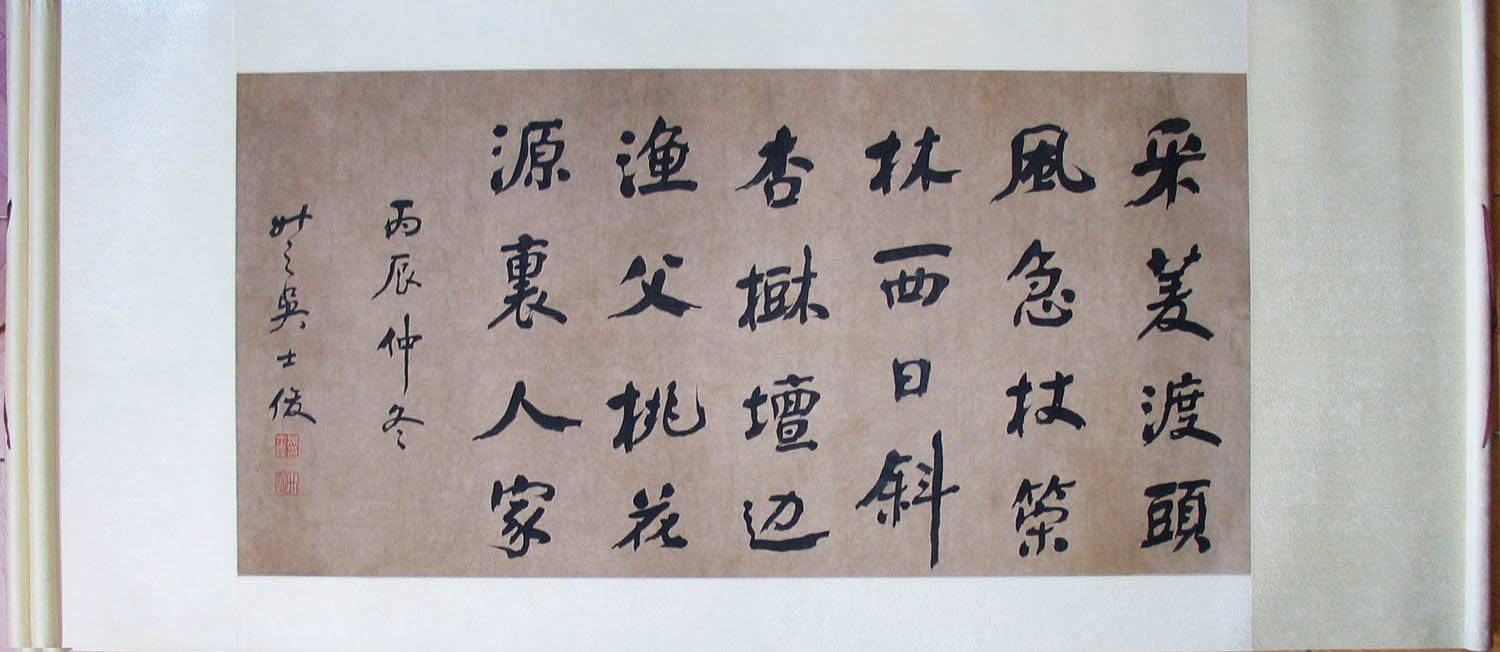 采菱渡頭
風急杖策
林西日斜
杏樹壇边
渔父桃花
源裏人家
丙辰仲冬
吳士俊